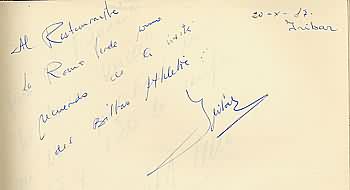 20-X-87.
Iribar
Al Restaurante
La Roma Verde como
recuerdo de la visita
del Bilbao Athletic
Iribar